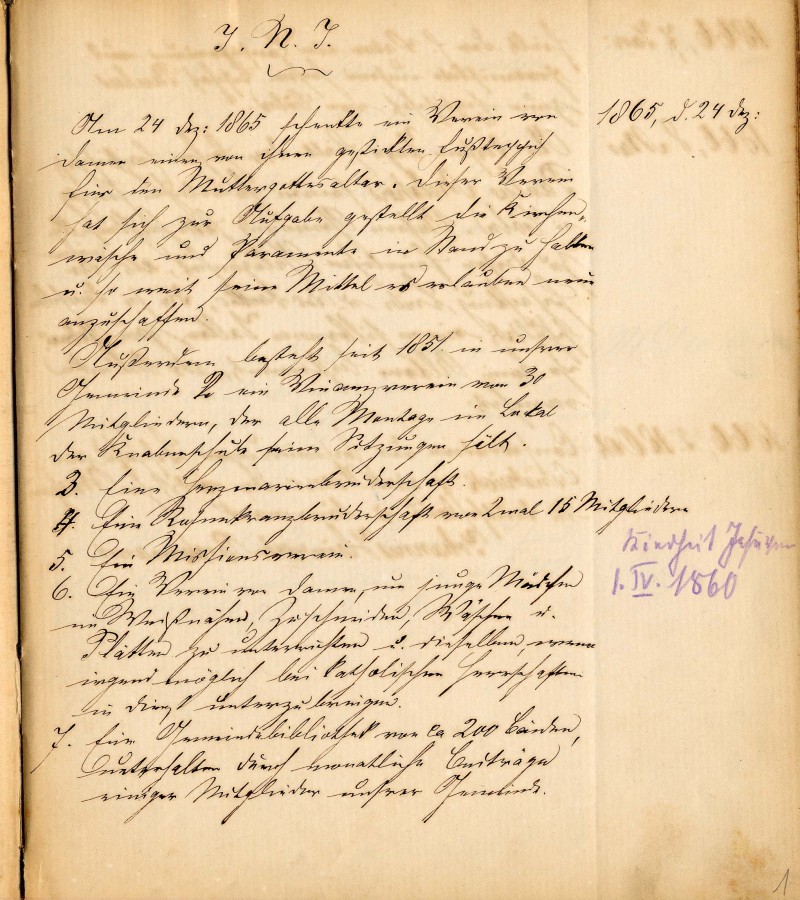 J. N. J.
Am 24 Dez: 1865 schenkte ein Verein von
1865, d. 24 Dez:
Damen einen von ihnen gestickten Fußteppich
für den Muttergottesaltar. Dieser Verein
hat sich zur Aufgabe gestellt die Kirchen„
wäsche und Paramente in Stand zu halten
u. so weit seine Mittel es erlauben neue
anzuschaffen.
Außerdem besteht seit 1851 in unsrer
Gemeinde 2 ein Vincenzverein von 30
Mitgliedern, der alle Montage im Lokal
der Knabenschule seine Sitzungen hält.
3. Eine Herzmarienbruderschaft.
4. Ein Rosenkranzbruderschaft von 2 mal 15 Mitgliedern
Kindheit Jesu
5. Ein Missionsverein.
1. IV. 1860
6. Ein Verein von Damen, um junge Mädchen
im Weißnähen, Zuschneiden, Waschen u.
Plätten zu unterrichten u. dieselben, wenn
irgend möglich bei katholischen Herrschaften
in Dienst unterzubringen.
7. Eine Gemeindebibliothek von ca 200 Bänden,
unterhalten durch monatliche Beiträge
einiger Mitglieder unsrer Gemeinde.
1